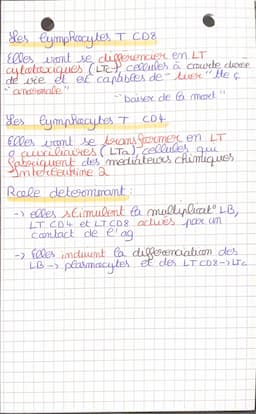 Les lymphocytes T CD8
Elles vont se différencier en LT
cytotoxiques (LTc) cellules à courte durée
de vie et et capables de "tuer" tte ¢
"anormale"
"baiser de la mort".
Les lymphocytes T CD4
Elles vont se transformer en LT
auxiliaires (LTa) cellules qui
fabriquent des médiateurs chimiques
Interleukine 2
Role déterminant :
-> elles stimulent la multiplicat° LB,
LT CD4 et LT CD8 activés par un
contact de l'ag
-> Elles induisent la différenciation des
LB -> plasmocytes et des LT CD8 -> LTc